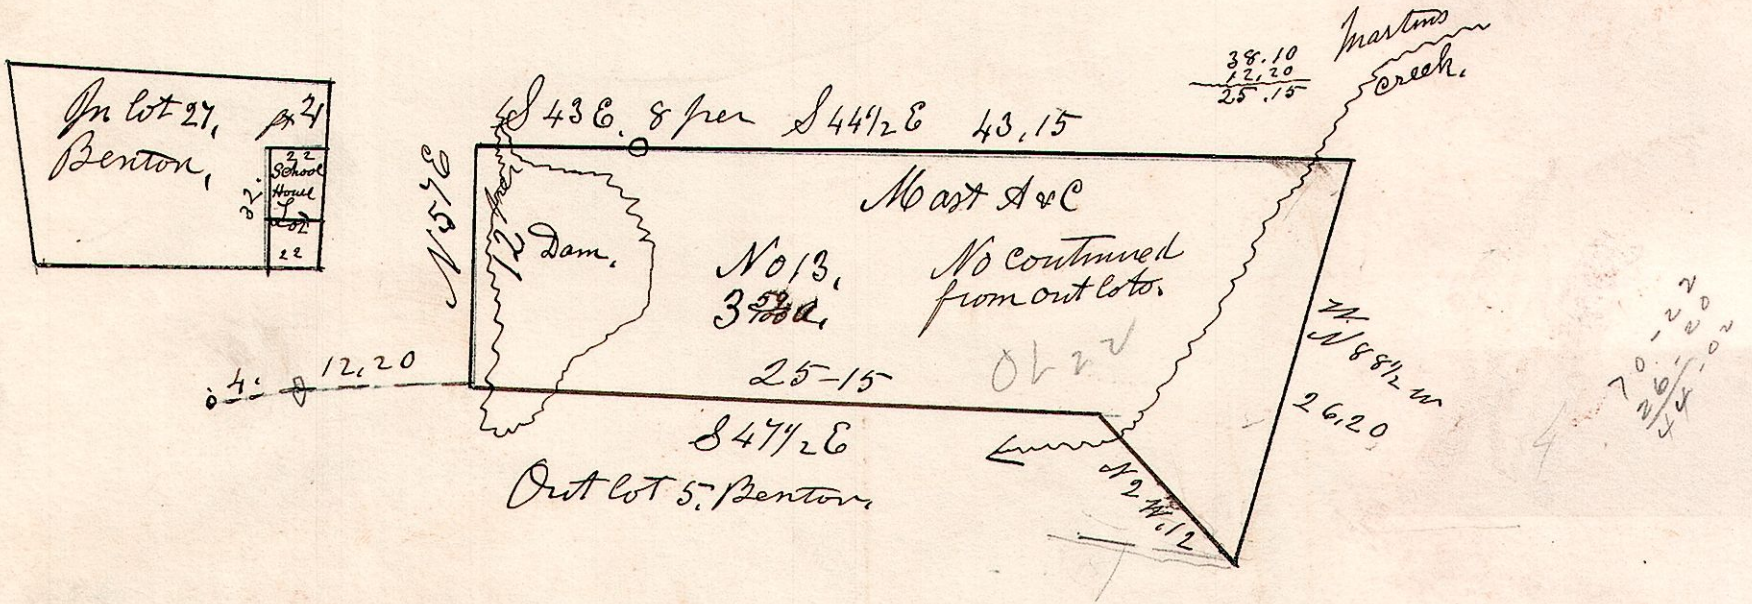 In lot 27,
Benton,
22
School
House
Lot
22
32.
S 43 E. 8 per S 44 1/2 E 43,15
38.10
12.20
25.15
Martins
creek.
N 57 E
12 per
Dam.
Mast A & C
No 13,
No continued
from out lots.
OL 22
4: 12,20
25-15
S 47 1/2 E
Out lot 5. Benton.
N 2 W. 12
N 88 1/2 W
26,20
70-22
26-20
44-02
4